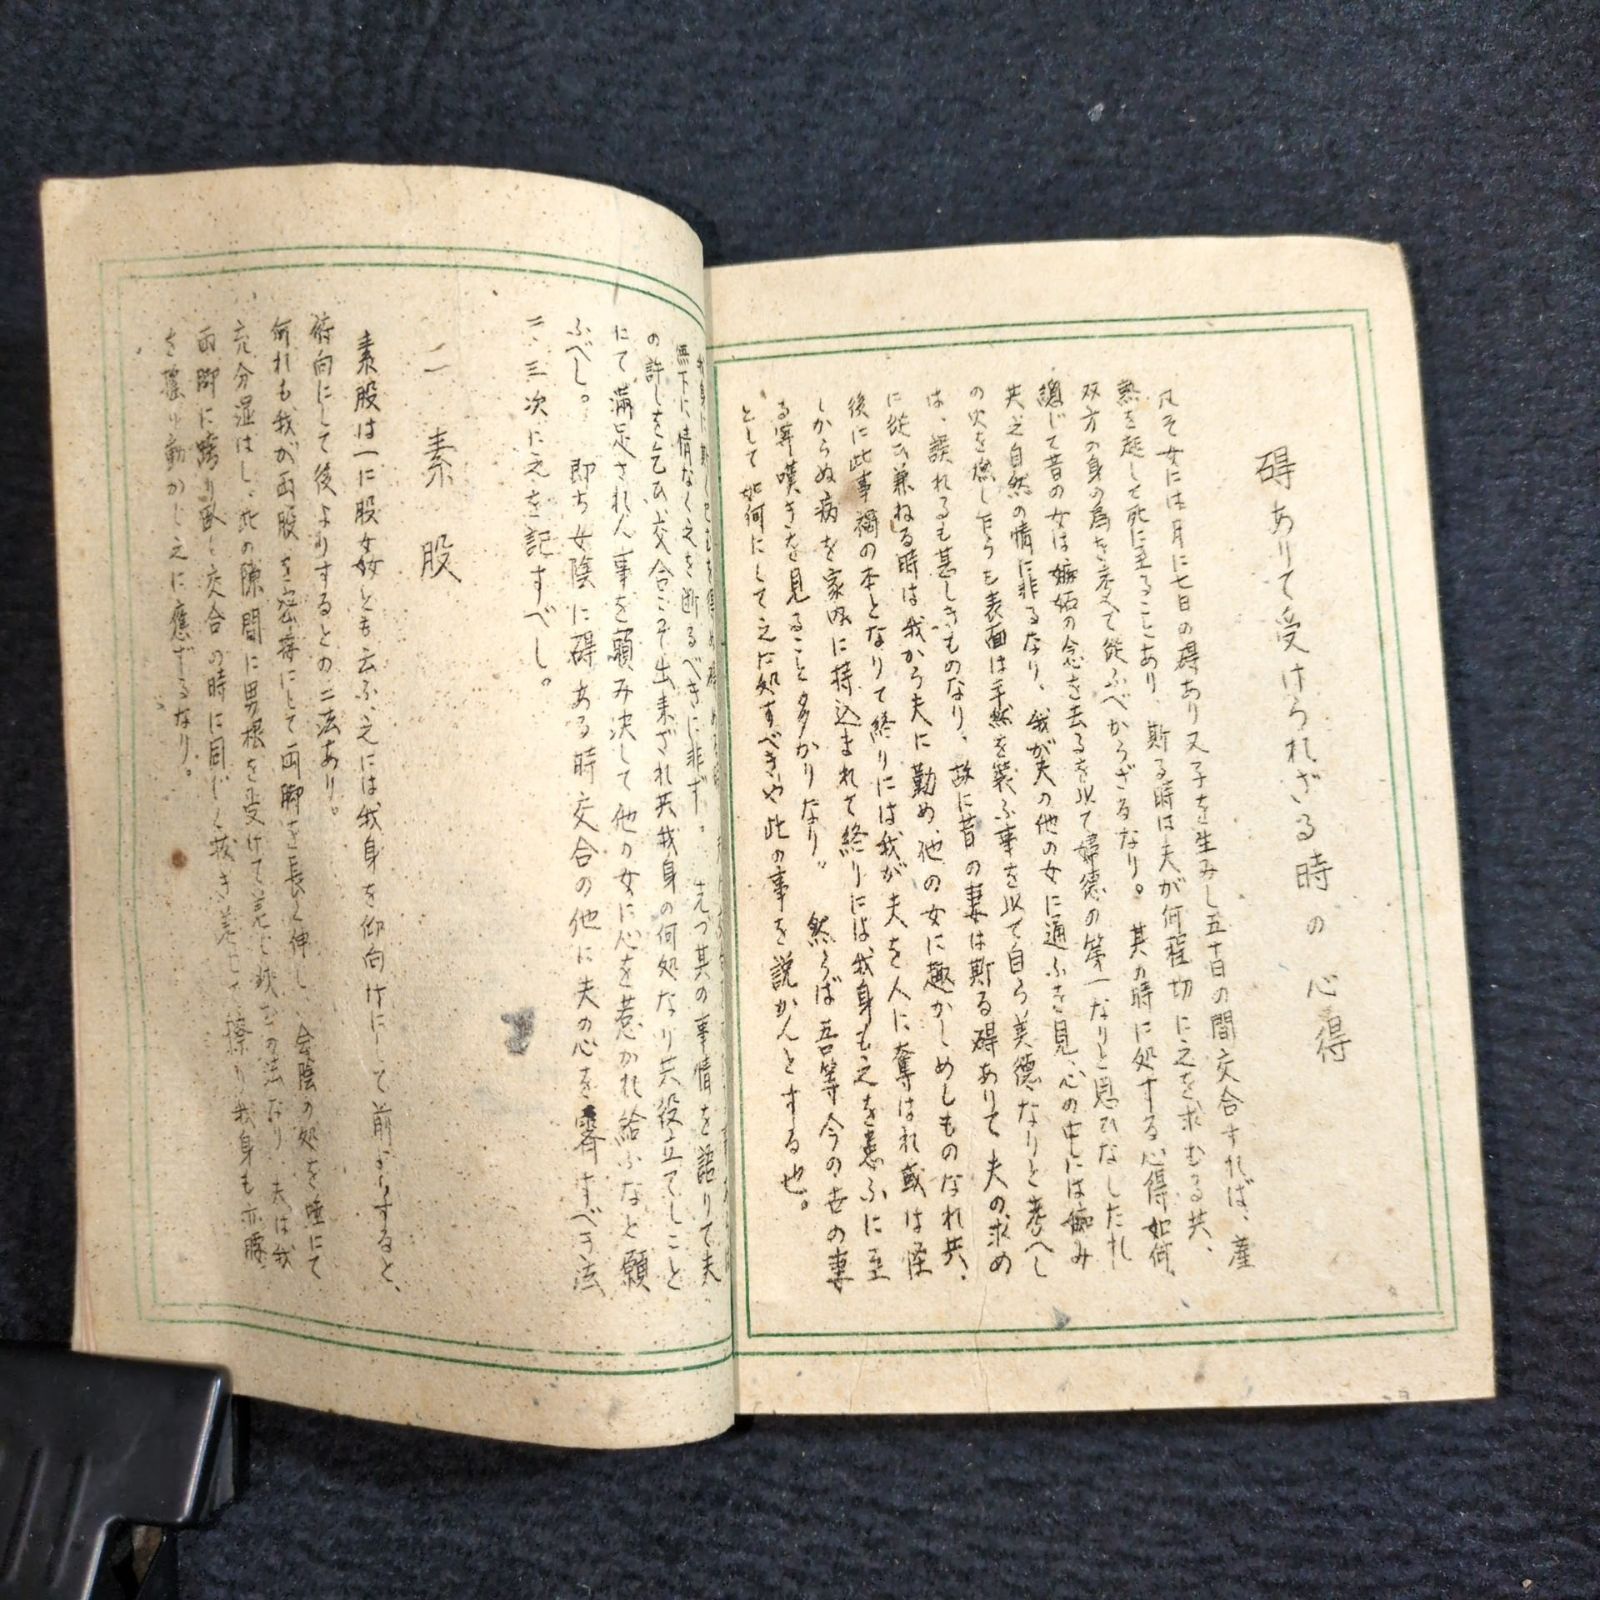 碍ありて受けられざる時の心得
凡そ女には月に七日の碍あり又子を生みし五十日の間交合すれば、産
熱を起して死に至ることあり、斯る時は夫が何程切に之を求むる共、
双方の身の為を考へて従ふべからざるなり。其の時に処する心得如何、
総じて昔の女は嫉妬の念を去るを以て婦徳の第一なりと思ひなしたれ
共之自然の情に非るなり、我が夫の他の女に通ふを見、心の中には痴み
の火を燃し乍らも表面は平然を装ふ事を以て自ら美徳なりと考へし
は、誤れるも甚しきものなり、故に昔の妻は斯る碍ありて夫の求め
に従ひ兼ねる時は我から夫に勤め、他の女に趣かしめしものなれ共、
後に此事禍の本となりて終りには我が夫を人に奪はれ或は怪
しからぬ病を家内に持込まれて終りには我身も之を患ふに至
る等嘆きを見ること多かりなり。然らば吾等今の世の妻
として如何にして之た処すべきや此の事を説かんとする也。
無下に情なく之を断るべきに非ず。先づ其の事情を語りて夫
の許しを乞ひ、交合こそ出来ざれ共我身の何処なり共役立てしこと
にて満足されん事を願み決して他の女に心を惹かれ給ふなと願
ふべし。即ち女陰に碍ある時交合の他に夫の心を齊すべき法
二、三次に之を記すべし。
二 素股
素股は一に股女妶とも云ふ、之には我身を仰向けにして前からすると、
俯向にして後よりするとの二法あり。
何れも我が両股を密着にして両脚を長く伸し、会陰の処を唾にて
充分湿はし、此の隙間に男根を受けて
両脚に跨り臥し交合の時に同じく抜き差して擦り我身も亦腰
を揺り動かし之に應ずるなり。